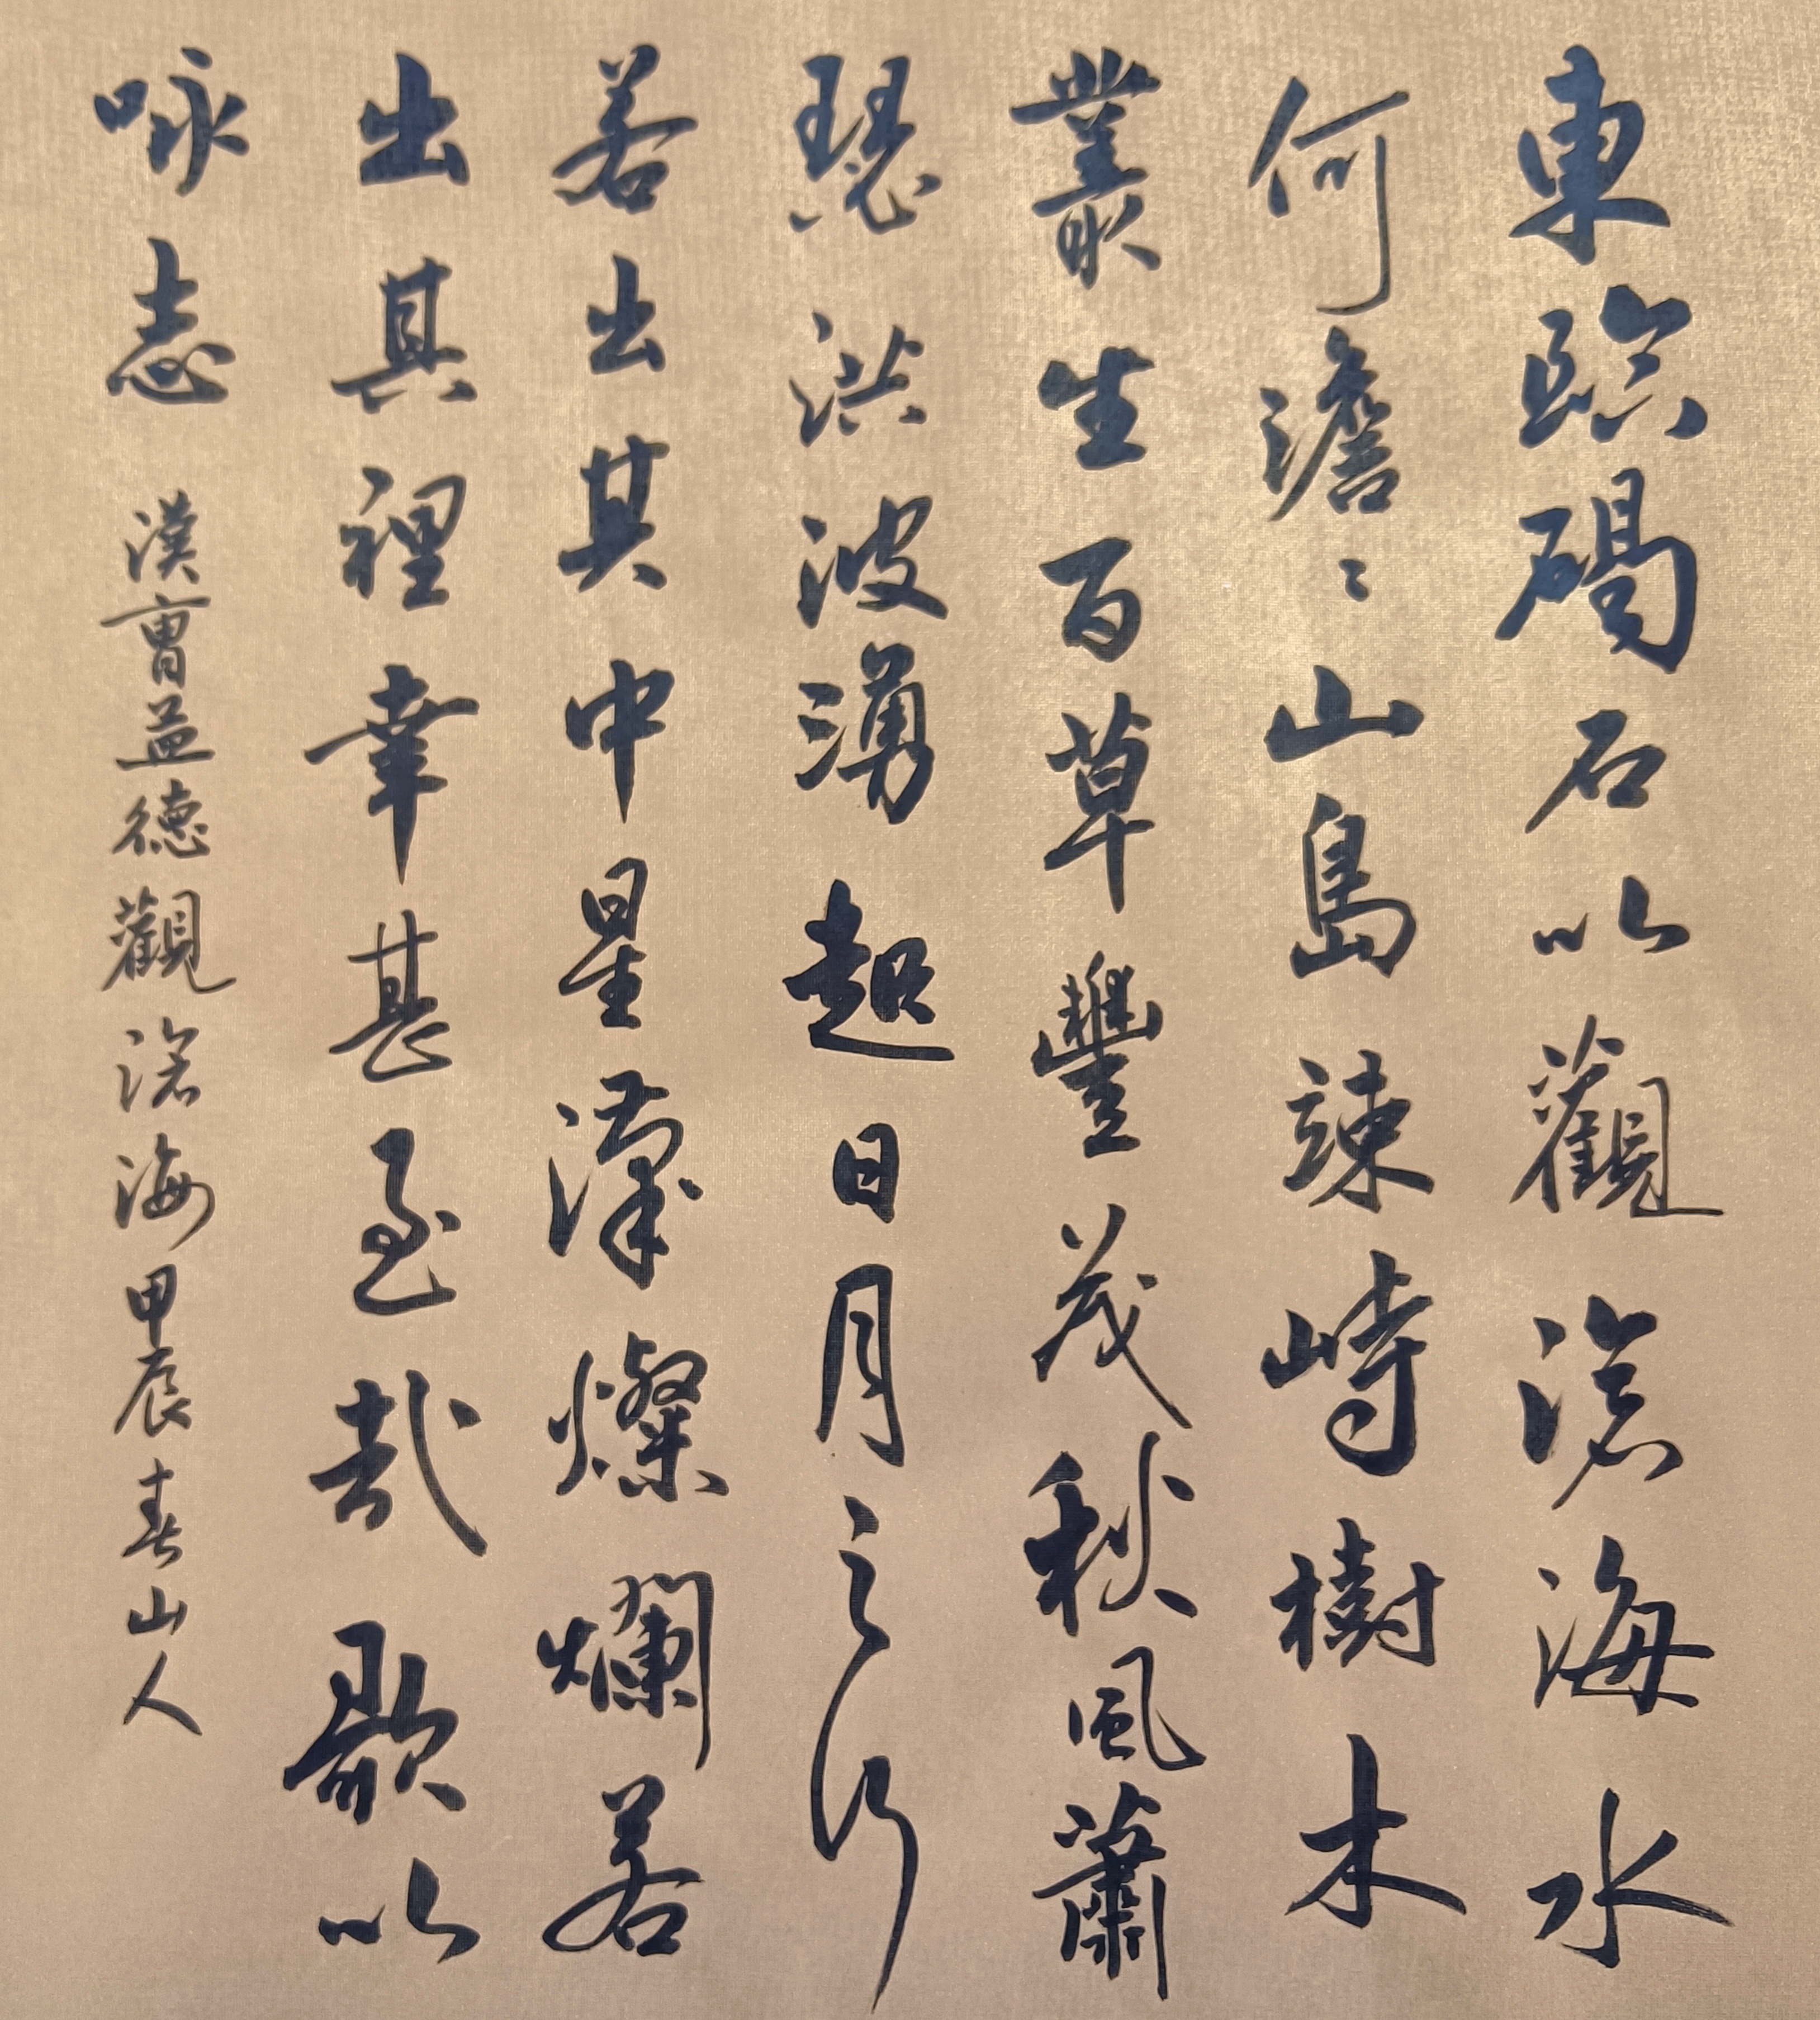 東臨碣石以觀滄海水
何澹〻山島竦峙樹木
叢生百草豐茂秋風蕭
瑟洪波湧起日月之行
若出其中星漢燦爛若
出其裡幸甚至哉歌以
咏志 漢曹益德觀滄海甲辰春山人